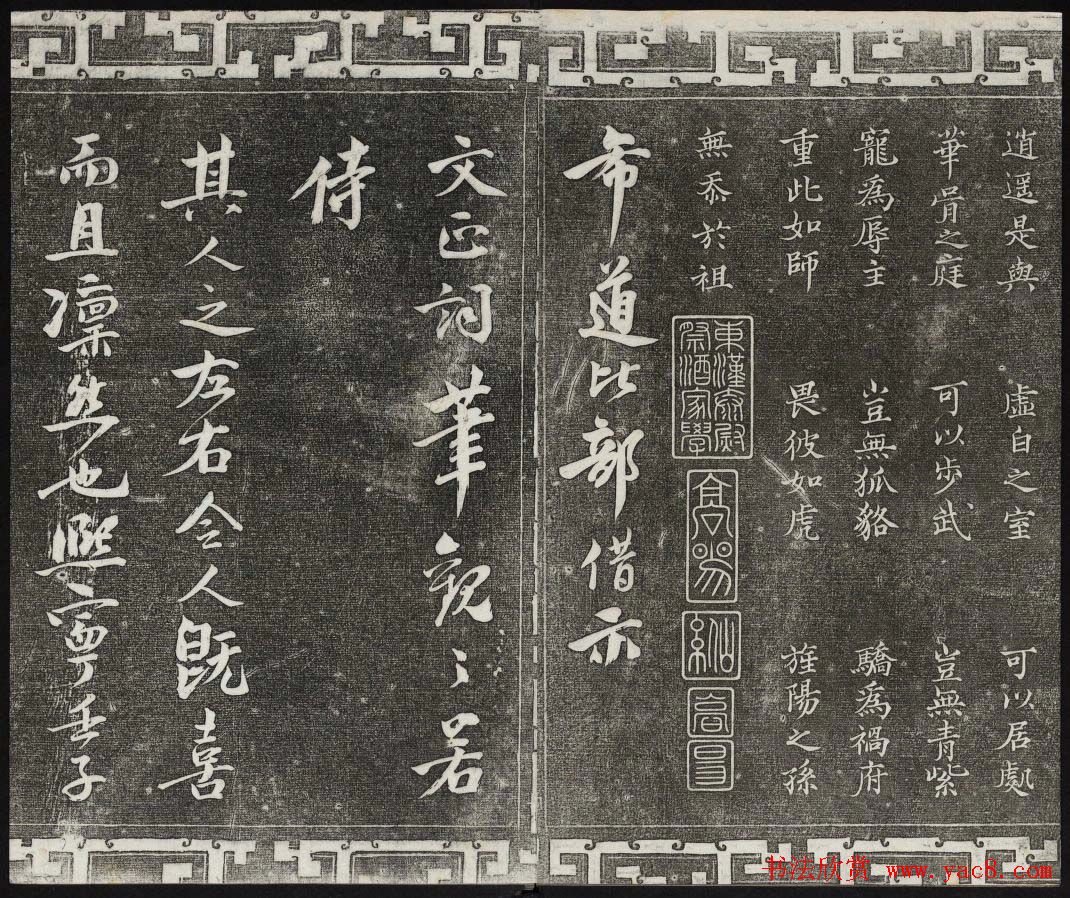 逍遥是與 虛自之室 可以居處
華胥之庭 可以步武 豈無青紫
寵爲辱主 豈無狐貉 驕爲禍府
重此如師 畏彼如虎 旌陽之孫
無忝於祖
東漢太尉
祭酒家學
高陽
希道比部借示
文正詞筆觀〻若
侍
其人之左右令人既喜
而且凜然也熙寧壬子
书法欣赏 www.yac8.com